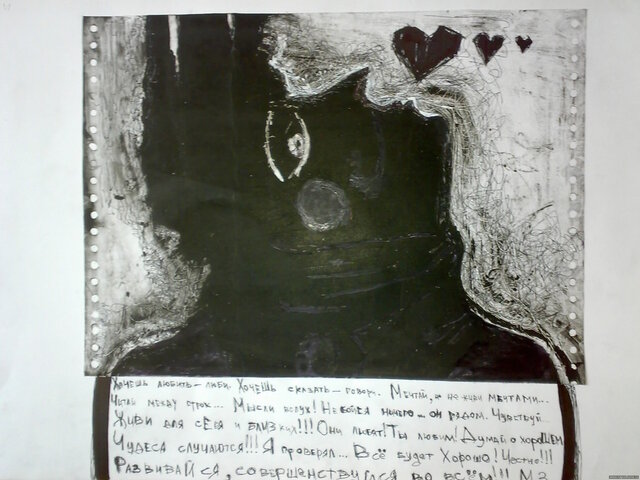 Хочешь любить – люби. Хочешь сказать – говори. Мечтай, и не живи мечтами...
Читай между строк... Мысли вслух! Не бойся ничего... он рядом. Чувствуй...
Живи для себя и близких!!! Они любят! Ты любим! Думай о хорошем
Чудеса случаются!!! Я проверял... Всё будет хорошо! Честно!!!
Развивайся, совершенствуйся во всём!!!